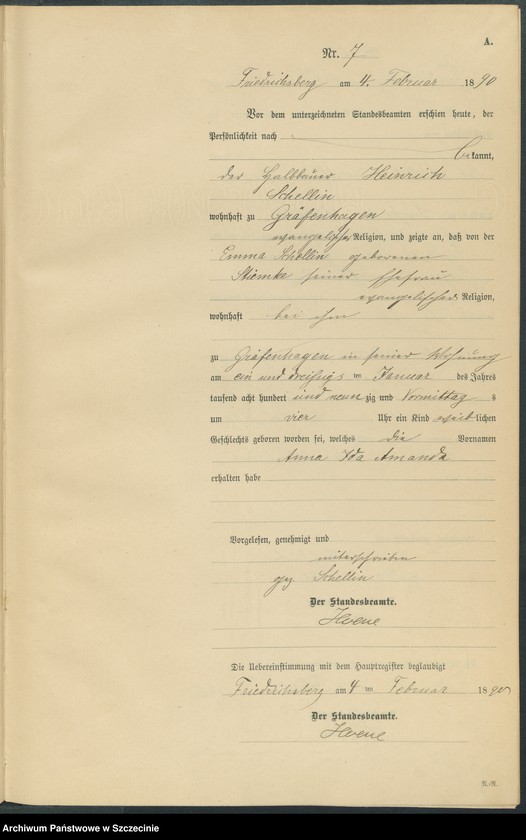 A.
Nr. 7
Friedrichsberg am 4. Februar 1890
Vor dem unterzeichneten Standesbeamten erschien heute, der
Persönlichkeit nach
bekannt,
der Halbbauer Heinrich
Schellin
wohnhaft zu Gräfenhagen
evangelischer Religion, und zeigte an, daß von der
Emma Schellin geborenen
Stiemke seiner Ehefrau
evangelischer Religion,
wohnhaft bei ihm
zu Gräfenhagen in seiner Wohnung
am ein und dreißigs ten Januar des Jahres
tausend acht hundert und neun zig und Vormittag s
um vier Uhr ein Kind weib lichen
Geschlechts geboren worden sei, welches die Vornamen
Anna Ida Amanda
erhalten habe
Vorgelesen, genehmigt und
unterschrieben
gez. Schellin
Der Standesbeamte.
Hoene
Die Uebereinstimmung mit dem Hauptregister beglaubigt
Friedrichsberg am 4 ten Februar 1890
Der Standesbeamte.
Hoene
R.-R.
Archiwum Państwowe w Szczecinie